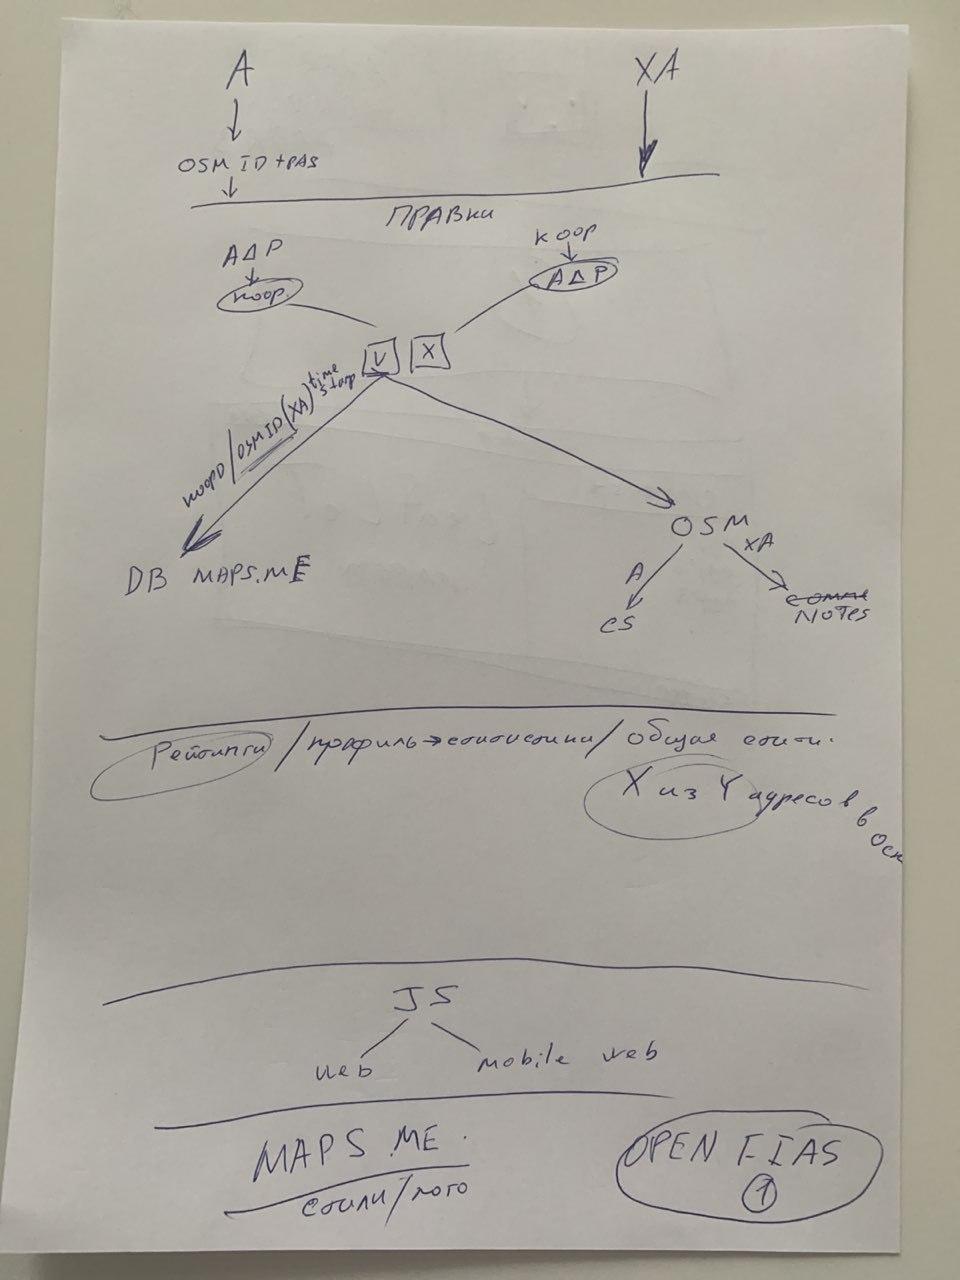 A
XA
OSM ID + PAS
ПРАВКИ
АДР
коор.
коор
АДР
V
X
коорд / OSM ID (XA) time stamp
DB MAPS.ME
OSM
A
XA
CS
NOTES
Рейтинги / профиль → статистики / общая стати.
X из Y адресов в ОСМ
JS
web
mobile web
MAPS.ME.
стили / лого
OPEN FIAS
1